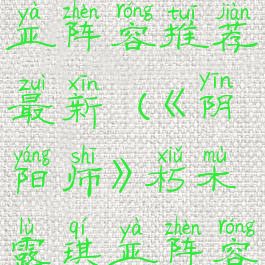 yà zhèn róng tuī jiàn
亚阵容推荐
zuì xīn yīn
最新(《阴
yáng shī xiǔ mù
阳师》朽木
lù qí yà zhèn róng
露琪亚阵容